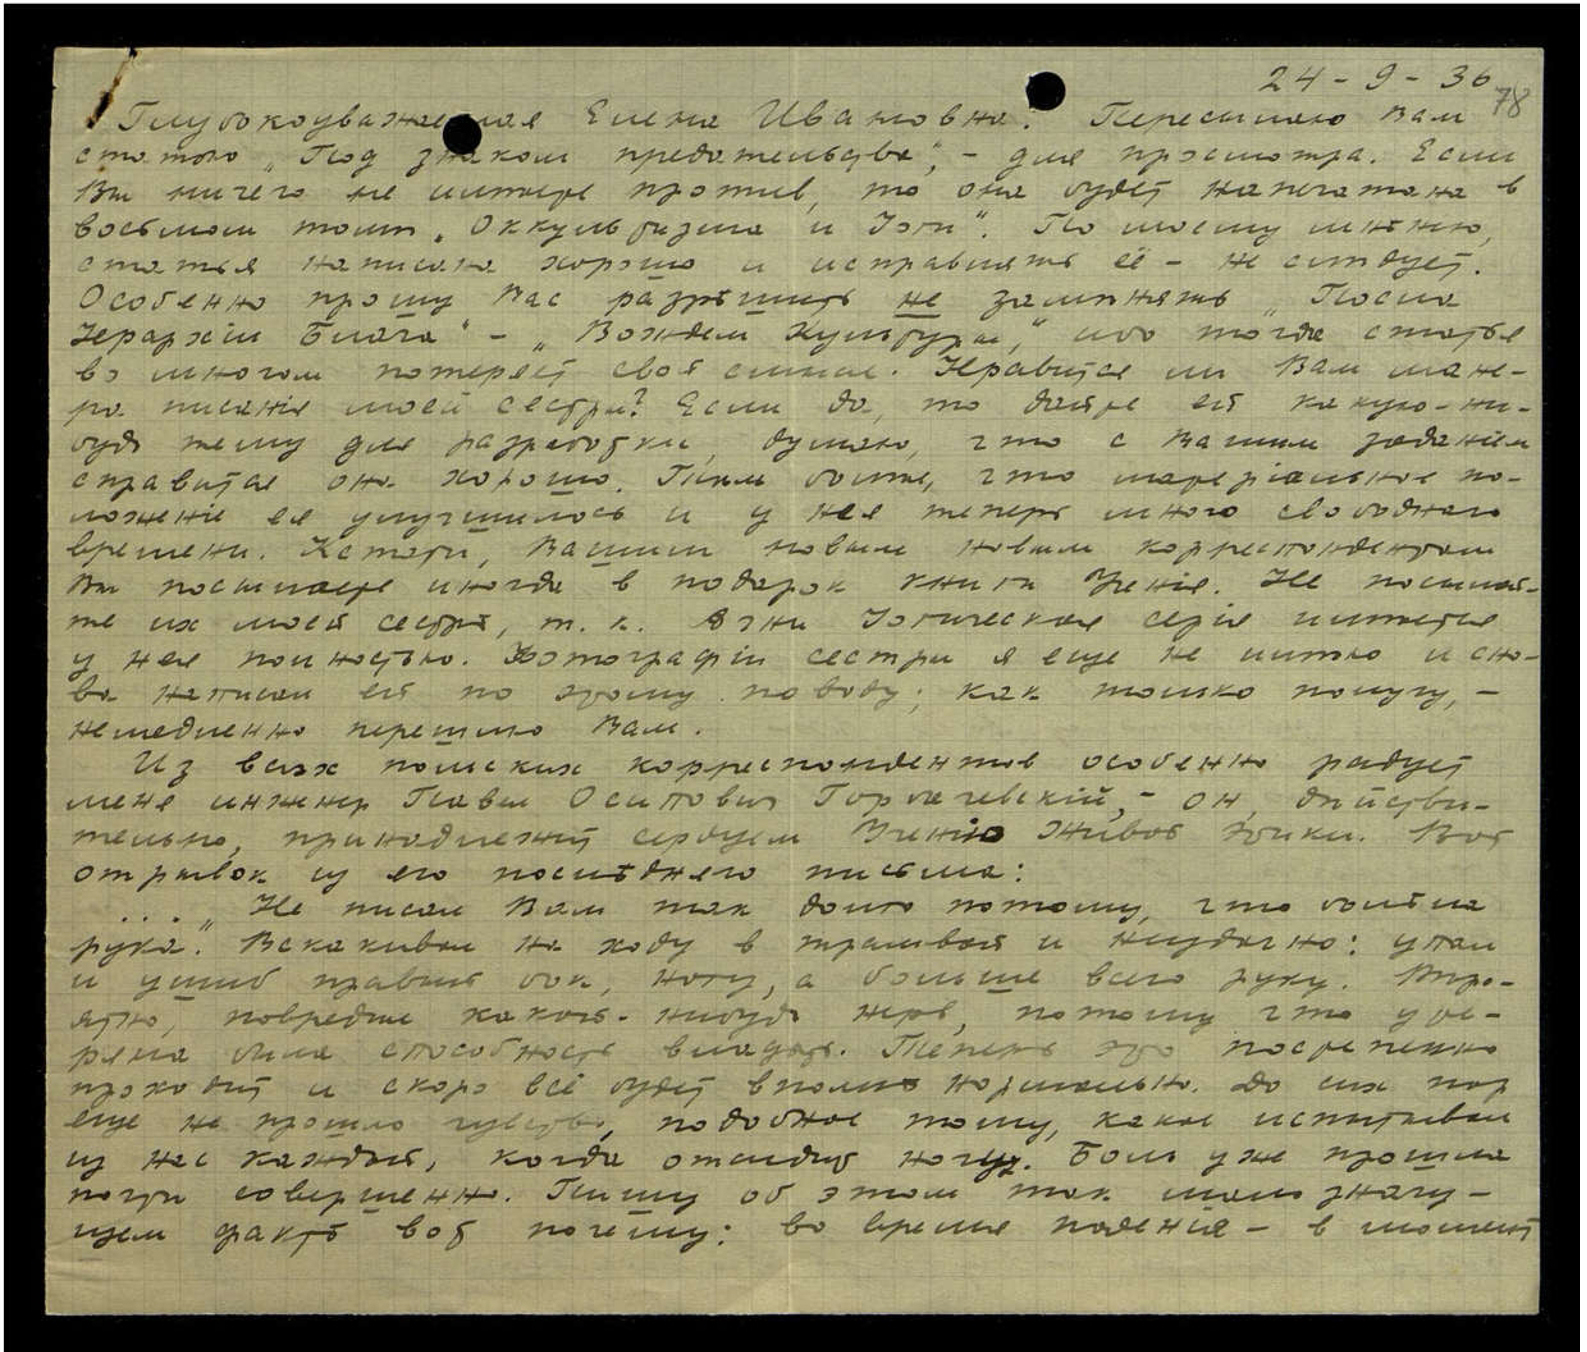 24 - 9 - 36
78
Глубокоуважаемая Елена Ивановна! Пересылаю Вам
статью „Под знаком предательства", - для просмотра. Если
Вы ничего не имеете против, то она будет напечатана в
восьмом томѣ „Оккультизма и Іоги". По моему мнѣнію,
статья написана хорошо и исправлять её - не слѣдует.
Особенно прошу Вас разрѣшить не замѣнять „Посла
Іерархіи Блага" - „Вождем Культуры", ибо тогда статья
во многом потеряет свой смысл. Нравится ли Вам мане-
ра писанія моей сестры? Если да, то дайте ей какую-ни-
будь тему для разработки, думаю, что с Вашим заданіем
справится она хорошо. Тѣм болѣе, что матеріальное по-
ложеніе ея улучшилось и у нея теперь много свободнаго
времени. Кстати, Вашим новым новым корреспондентам
Вы посылаете иногда в подарок книги Ученія. Не посылай-
те их моей сестрѣ, т. к. Агни Іогическая серія имѣется
у нея полностью. Фотографіи сестры я еще не имѣю и сно-
ва написал ей по этому поводу; как только получу, -
немедленно перешлю Вам.
Из всѣх польских корреспондентов особенно радует
меня инженер Павел Осипович Горбачевскій, - он, дѣйстви-
тельно, принадлежит сердцем Ученію Живой Этики. Вот
отрывок из его послѣдняго письма:
... „Не писал Вам так долго потому, что болѣла
рука". Вскакивал на ходу в трамвай и неудачно: упал
и ушиб правый бок, ногу, а больше всего руку. Вѣро-
ятно, повредил какой-нибудь нерв, потому что уте-
ряна была способность владѣть. Теперь это постепенно
проходит и скоро всё будет вполнѣ нормально. До сих пор
еще не прошло чувство, подобное тому, какое испытывал
из нас каждый, когда отсидит ногу. Боль уже прошла
почти совершенно. Пишу об этом так мало значу-
щем фактѣ вот почему: во время паденія - в момент